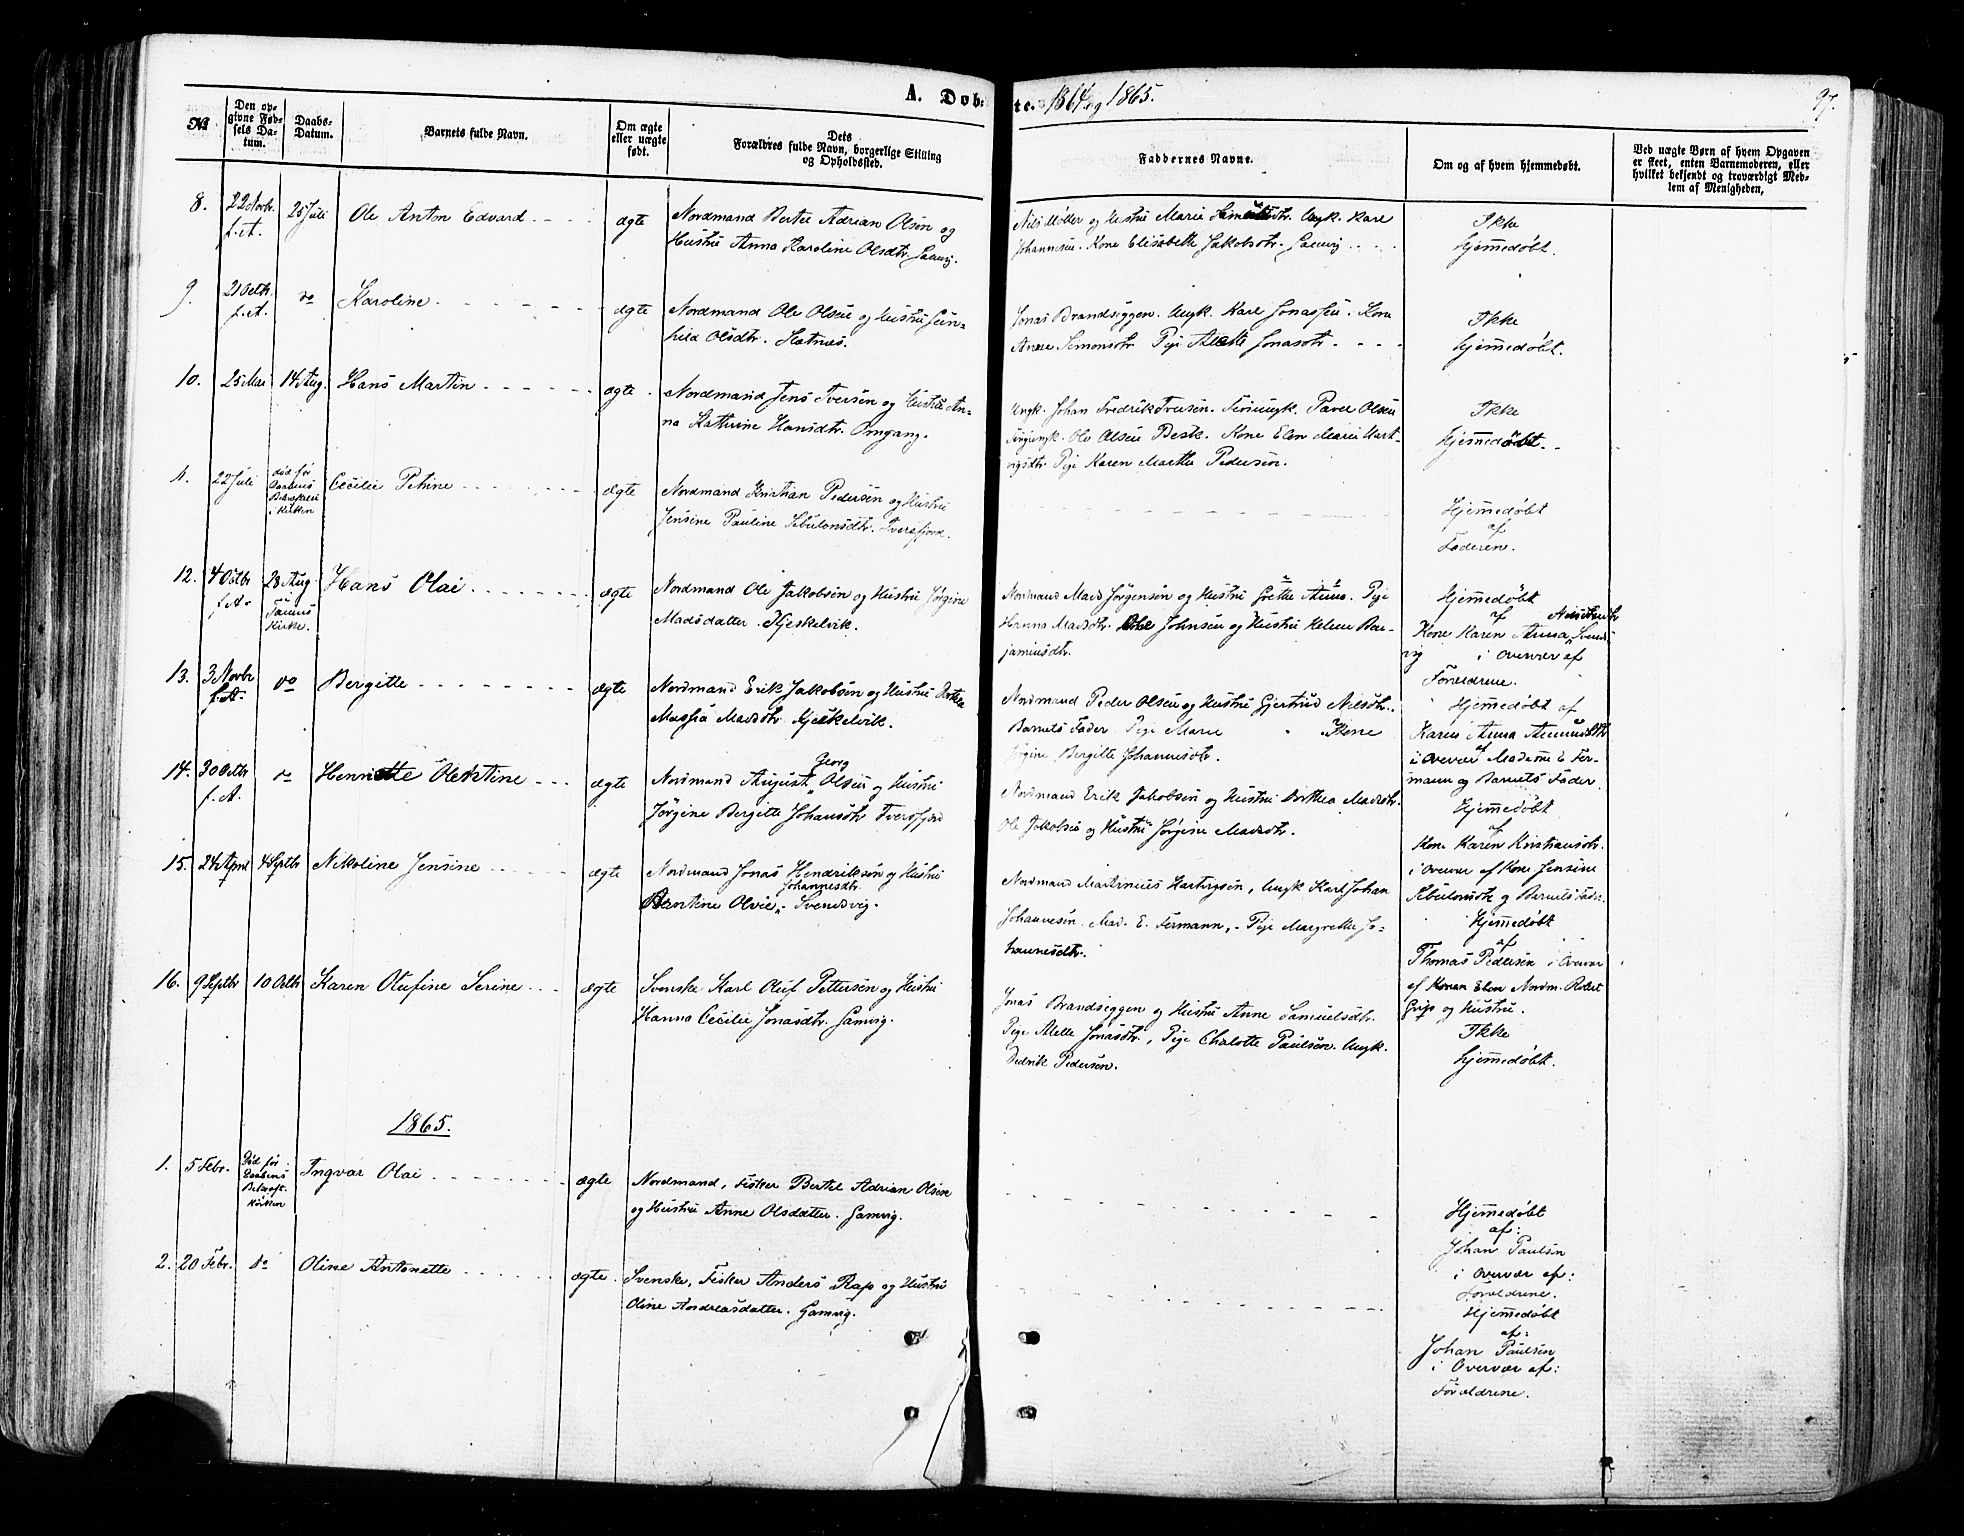 A. Døbte. 1864 og 1865.
97.
№
Den opgivne Fødsels Datum.
Daabs-Datum.
Barnets fulde Navn.
Om ægte eller uægte født.
Dets Forældres fulde Navn, borgerlige Stilling og Opholdssted.
Faddernes Navne.
Om og af hvem hjemmedøbt.
Ved uægte Børn af hvem Opgaven er skeet, enten Barnemoderen, eller hvilket bekjendt og troværdigt Medlem af Menigheden.
8. 22 Novbr. f. A. 25 Juli Ole Anton Edvard ægte
Nordmand Bertel Adrian Olsen og
Hustru Anna Karoline Olsdtr. Gamvig.
Nils Møller og Hustru Marie Ungk. Karl
Johannesen. Kone Elisabeth Jakobsdtr. Gamvig
Ikke
Hjemmedøbt.
9. 21 Octbr. f. A. do Karoline ægte
Nordmand Ole Olsen og Hustru Gun-
hild Olsdtr.
Jonas Brandseggen. Ungk. Karl Jonassen. Kone
Anne Simonsdtr. Pige Alette Jonasdtr
Ikke
Hjemmedøbt.
10. 25 Mai 14 Aug. Hans Martin ægte
Nordmand Jens Iversen og Hustru An-
na Kathrine Hansdtr. Omgang.
Ungk. Johan Fredrik Iversen. Ungk. Olsen
Ole Olsen Besk. Kone Elen Marie Hart-
vigsdtr. Pige Karen Marthe Pedersen.
Ikke
Hjemmedøbt.
11. 22 Juli død før Daabens Bekræftelse i Kirken Cecilie Petrine ægte
Nordmand Kristian Pedersen og Hustru
Jensine Pauline Sebulonsdtr. Tversfjord.
Hjemmedøbt
af
Faderen.
12. 4 Octbr f. A. 28 Aug. i Tanens Kirke. Hans Olai ægte
Nordmand Ole Jakobsen og Hustru Jørgine
Madsdatter. Kjeskelvik.
Nordmand Mads Jørgensen og Hustru Grethe Anna. Pige
Hanna Madsdtr. Ole Johnsen og Hustru Helene Ben-
jaminsdtr.
Hjemmedøbt
af
Kone Karen Anna Svends-
vig i Overvær af
Forældrene.
13. 3 Novbr f. A. do Bergitte ægte
Nordmand Erik Jakobsen og Hustru Dorthea
Massia Madsdtr. Kjeskelvik.
Nordmand Peder Olsen og Hustru Gjertrud Nilsdtr.
Barnets Fader. Pige Marie " Kone
Jørgine Bergitte Johannsdtr.
Hjemmedøbt af
Karen Anna
i Overvær af Madame E. Fer-
mann og Barnets Fader.
14. 30 Octbr f. A. do Henriette Olentine ægte
Georg
Nordmand August Olsen og Hustru
Jørgine Bergitte Johansdtr Tversfjord
Nordmand Erik Jakobsen og Hustru Dorthea Madsdtr.
Ole Jakobsen og Hustru Jørgine Madsdtr.
Hjemmedøbt
af
Kone Karen Kristiansdtr.
i Overvær af Kone Jensine
Sebulonsdtr og Barnets Fader.
15. 24 April 4 Septbr Nikoline Jensine ægte
Nordmand Jonas Hendriksen og Hustru
Johannesdtr.
Olvie. Svendsvig.
Nordmand Martinius Hartvigsen, Ungk Karl Johan
Johannesen. Mad. E. Fermann, Pige Margrethe Jo-
hannesdtr.
Hjemmedøbt
af
Thomas Pedersen i Overvær
af Konen Elen Nordm.
Grip og Hustru.
16. 9 Septbr 10 Octbr Karen Olufine Serine ægte
Svenske Karl Oluf Pettersen og Hustru
Hanna Cecilie Jonasdtr. Gamvig.
Jonas Brandseggen og Hustru Anne Samuelsdtr.
Pige Alette Jonasdtr., Pige Charlotte Paulsen. Ungk.
Dedrik Pedersen.
Ikke
Hjemmedøbt.
1865.
1. 5 Febr. Død før Daabens Bekræft. Kirken Ingvar Olai ægte
Nordmand, Fisker Bertel Adrian Olsen
og Hustru Anne Olsdatter. Gamvig.
Hjemmedøbt
af:
Johan Paulsen
i Overvær af:
Forældrene.
2. 20 Febr. do Oline Antonette ægte.
Svenske, Fisker Anders Rap og Hustru
Oline Andreasdatter. Gamvig.
Hjemmedøbt
af:
Johan Paulsen
i Overvær af:
Forældrene.